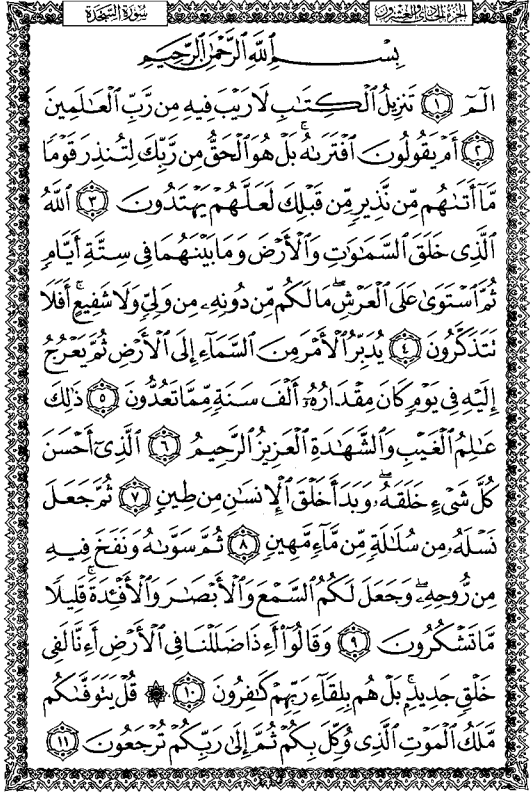 الجزء الحادي والعشرون
سورة السجدة
بِسْمِ اللَّهِ الرَّحْمَٰنِ الرَّحِيمِ
الٓمٓ ۝١ تَنزِيلُ الْكِتَابِ لَا رَيْبَ فِيهِ مِن رَّبِّ الْعَالَمِينَ
۝٢ أَمْ يَقُولُونَ افْتَرَاهُ ۚ بَلْ هُوَ الْحَقُّ مِن رَّبِّكَ لِتُنذِرَ قَوْمًا
مَّا أَتَاهُم مِّن نَّذِيرٍ مِّن قَبْلِكَ لَعَلَّهُمْ يَهْتَدُونَ ۝٣ اللَّهُ
الَّذِي خَلَقَ السَّمَاوَاتِ وَالْأَرْضَ وَمَا بَيْنَهُمَا فِي سِتَّةِ أَيَّامٍ
ثُمَّ اسْتَوَىٰ عَلَى الْعَرْشِ ۖ مَا لَكُم مِّن دُونِهِ مِن وَلِيٍّ وَلَا شَفِيعٍ ۚ أَفَلَا
تَتَذَكَّرُونَ ۝٤ يُدَبِّرُ الْأَمْرَ مِنَ السَّمَاءِ إِلَى الْأَرْضِ ثُمَّ يَعْرُجُ
إِلَيْهِ فِي يَوْمٍ كَانَ مِقْدَارُهُ أَلْفَ سَنَةٍ مِّمَّا تَعُدُّونَ ۝٥ ذَٰلِكَ
عَالِمُ الْغَيْبِ وَالشَّهَادَةِ الْعَزِيزُ الرَّحِيمُ ۝٦ الَّذِي أَحْسَنَ
كُلَّ شَيْءٍ خَلَقَهُ ۖ وَبَدَأَ خَلْقَ الْإِنسَانِ مِن طِينٍ ۝٧ ثُمَّ جَعَلَ
نَسْلَهُ مِن سُلَالَةٍ مِّن مَّاءٍ مَّهِينٍ ۝٨ ثُمَّ سَوَّاهُ وَنَفَخَ فِيهِ
مِن رُّوحِهِ ۖ وَجَعَلَ لَكُمُ السَّمْعَ وَالْأَبْصَارَ وَالْأَفْئِدَةَ ۚ قَلِيلًا
مَّا تَشْكُرُونَ ۝٩ وَقَالُوا أَءِذَا ضَلَلْنَا فِي الْأَرْضِ أَءِنَّا لَفِي
خَلْقٍ جَدِيدٍ ۚ بَلْ هُم بِلِقَاءِ رَبِّهِمْ كَافِرُونَ ۝١٠ ۞ قُلْ يَتَوَفَّاكُم
مَّلَكُ الْمَوْتِ الَّذِي وُكِّلَ بِكُمْ ثُمَّ إِلَىٰ رَبِّكُمْ تُرْجَعُونَ ۝١١